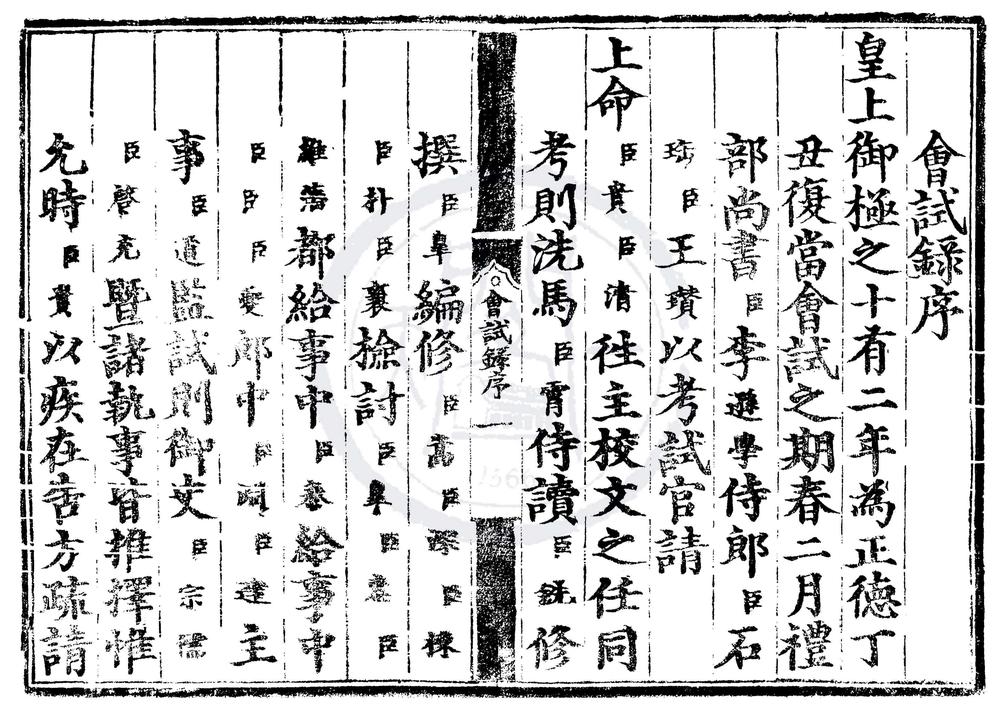 會試錄序
皇上御極之十有二年為正德丁
丑復當會試之期春二月禮
部尚書臣李遜學侍郎臣石
珤臣王瓚以考試官請
上命臣貴臣清往主校文之任同
考則洗馬臣霄侍讀臣銑修
會試錄序 一
撰臣皐編修臣臣臣棟
臣朴臣襄檢討臣臣臣
都給事中臣給事中
臣臣臣郎中臣臣達主
事臣道監試則御史臣宗
臣充暨諸執事皆推擇惟
允時臣貴以疾在告方疏請